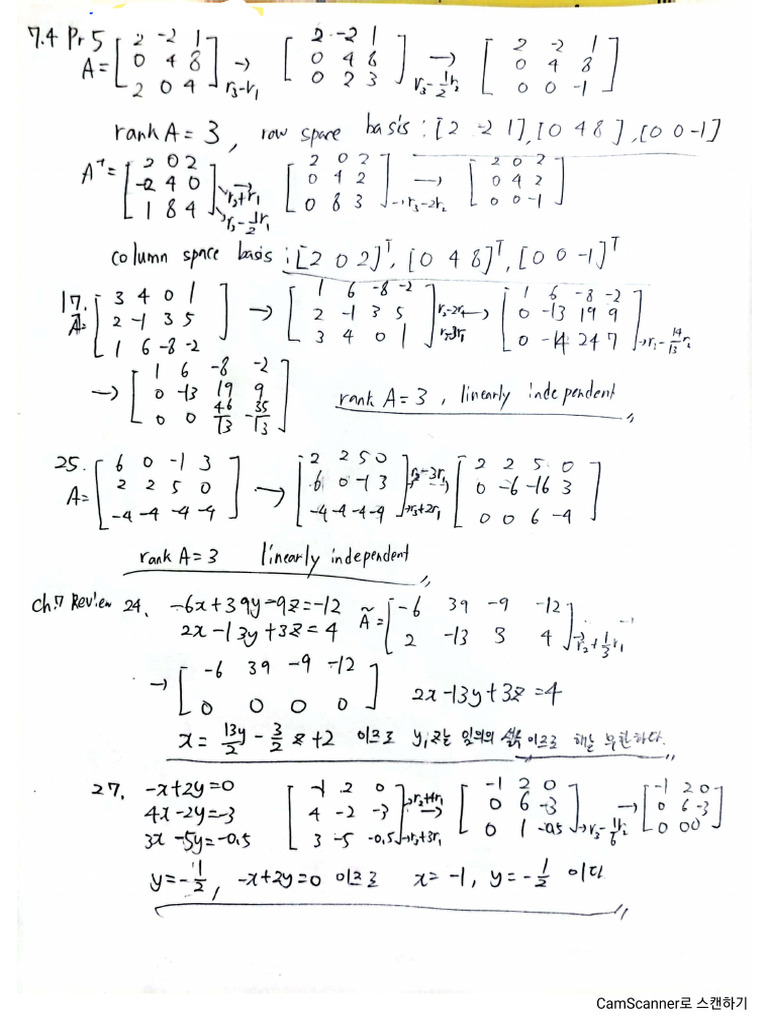 7.4 Pr 5
A = [2 -2 1; 0 4 8; 2 0 4] → r3-r1 [2 -2 1; 0 4 8; 0 2 3] → r3-1/2r2 [2 -2 1; 0 4 8; 0 0 -1]
rank A = 3, row space basis : [2 -2 1], [0 4 8], [0 0 -1]
A^T = [2 0 2; -2 4 0; 1 8 4] → r2+r1 → r3-1/2r1 [2 0 2; 0 4 2; 0 8 3] → r3-2r2 [2 0 2; 0 4 2; 0 0 -1]
column space basis : [2 0 2]^T, [0 4 8]^T, [0 0 -1]^T
17. A = [3 4 0 1; 2 -1 3 5; 1 6 -8 -2] → [1 6 -8 -2; 2 -1 3 5; 3 4 0 1] → [1 6 -8 -2; 0 -13 19 9; 0 -14 24 7]
→ [1 6 -8 -2; 0 -13 19 9; 0 0 46/13 -35/13] rank A = 3, linearly independent
25. A = [6 0 -1 3; 2 2 5 0; -4 -4 -4 -4] → [2 2 5 0; 6 0 -1 3; -4 -4 -4 -4] r2-3r1 → r3+2r1 [2 2 5 0; 0 -6 -16 3; 0 0 6 -4]
rank A = 3 linearly independent
ch.7 Review 24. -6x+39y-9z=-12
2x-13y+3z=4 Ã = [-6 39 -9 -12; 2 -13 3 4] → r2+1/3r1
→ [-6 39 -9 -12; 0 0 0 0] 2x-13y+3z=4
x = 13y/2 - 3/2 z + 2 이므로 y, z는 임의의 실수 이므로 해는 무한하다.
27. -x+2y=0
4x-2y=-3
3x-5y=-0.5 [-1 2 0; 4 -2 -3; 3 -5 -0.5] r2+4r1 → r3+3r1 [-1 2 0; 0 6 -3; 0 1 -0.5] → r3-1/6r2 → [-1 2 0; 0 6 -3; 0 0 0]
y = -1/2, -x+2y=0 이므로 x=-1, y=-1/2 이다
CamScanner로 스캔하기